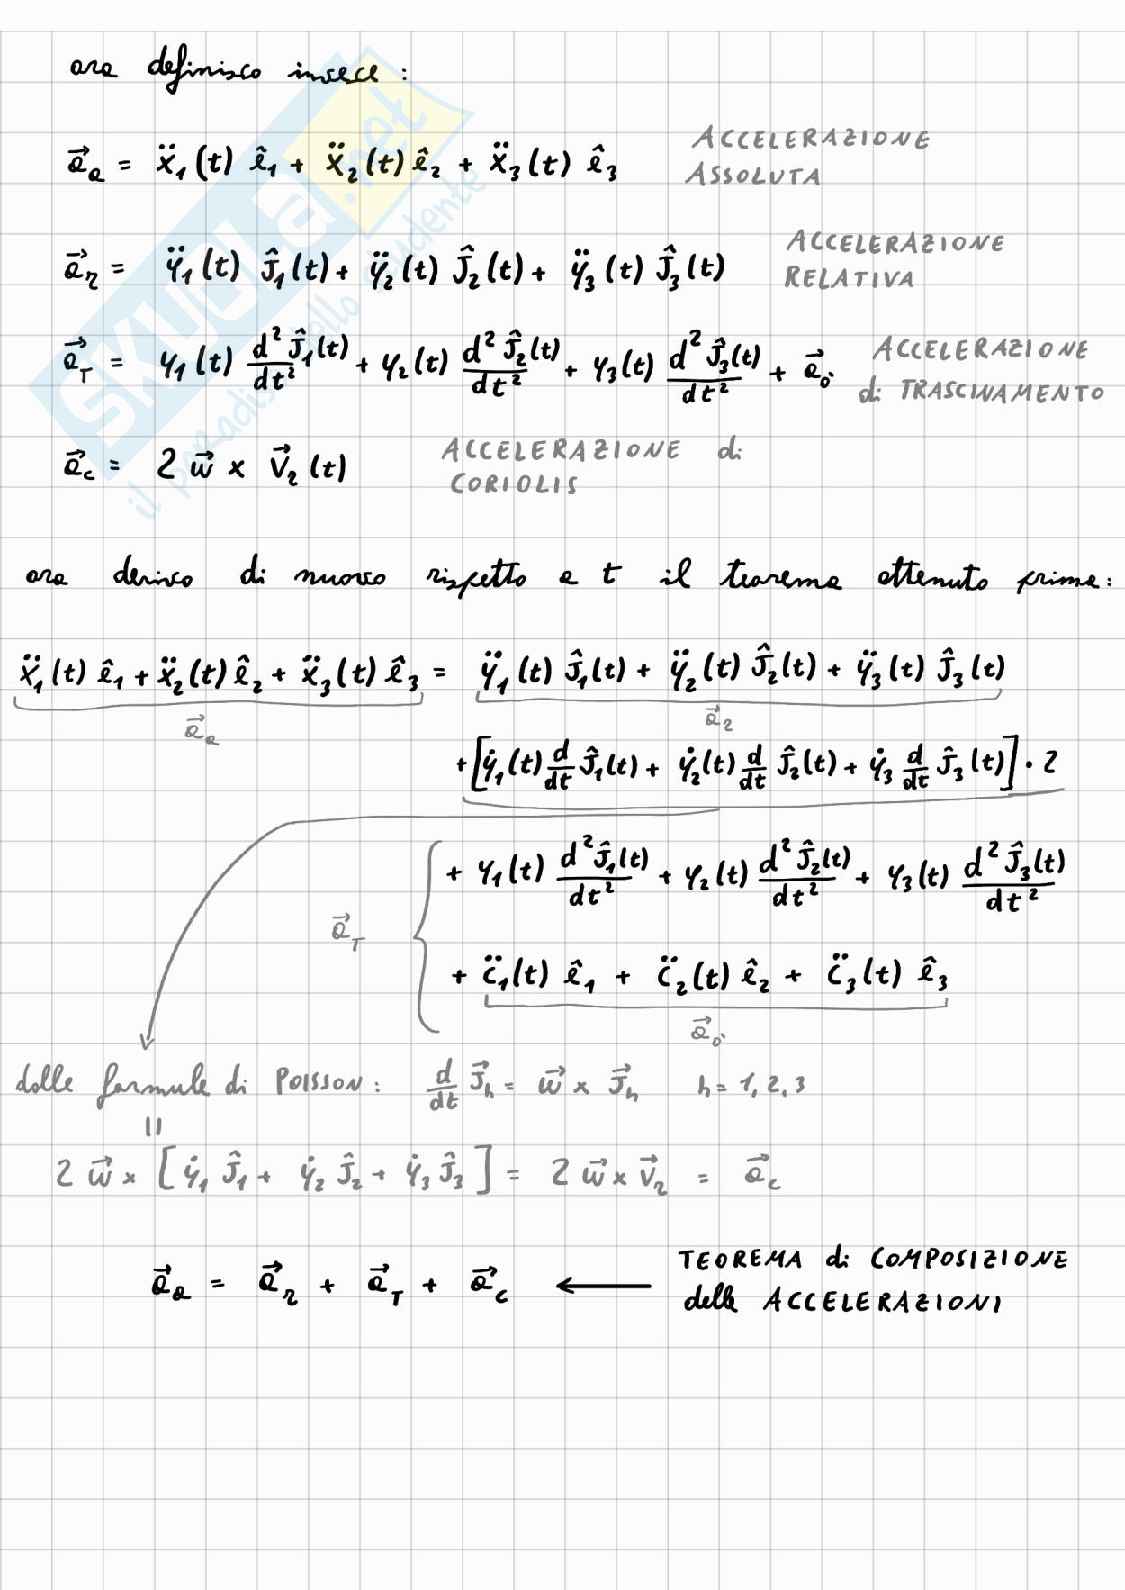 ora definisco invece:
a⃗ₐ = ẍ₁(t) ê₁ + ẍ₂(t) ê₂ + ẍ₃(t) ê₃ ACCELERAZIONE
ASSOLUTA
a⃗ᵣ = ÿ₁(t) Ĵ₁(t) + ÿ₂(t) Ĵ₂(t) + ÿ₃(t) Ĵ₃(t) ACCELERAZIONE
RELATIVA
a⃗_T = y₁(t) d²Ĵ₁(t)/dt² + y₂(t) d²Ĵ₂(t)/dt² + y₃(t) d²Ĵ₃(t)/dt² + a⃗_o' ACCELERAZIONE
di TRASCINAMENTO
a⃗_c = 2 w⃗ × v⃗ᵣ(t) ACCELERAZIONE di
CORIOLIS
SKUOLA.net
il paradiso dello studente
ora derivo di nuovo rispetto a t il teorema ottenuto prima:
ẍ₁(t) ê₁ + ẍ₂(t) ê₂ + ẍ₃(t) ê₃ = ÿ₁(t) Ĵ₁(t) + ÿ₂(t) Ĵ₂(t) + ÿ₃(t) Ĵ₃(t)
a⃗ₐ a⃗ᵣ
+ [ẏ₁(t) d/dt Ĵ₁(t) + ẏ₂(t) d/dt Ĵ₂(t) + ẏ₃ d/dt Ĵ₃(t)] · 2
+ y₁(t) d²Ĵ₁(t)/dt² + y₂(t) d²Ĵ₂(t)/dt² + y₃(t) d²Ĵ₃(t)/dt²
a⃗_T
+ c̈₁(t) ê₁ + c̈₂(t) ê₂ + c̈₃(t) ê₃
a⃗_o'
dalle formule di POISSON: d/dt J⃗ₕ = w⃗ × J⃗ₕ h = 1, 2, 3
=
2 w⃗ × [ẏ₁ Ĵ₁ + ẏ₂ Ĵ₂ + ẏ₃ Ĵ₃] = 2 w⃗ × v⃗ᵣ = a⃗_c
a⃗ₐ = a⃗ᵣ + a⃗_T + a⃗_c ← TEOREMA di COMPOSIZIONE
delle ACCELERAZIONI